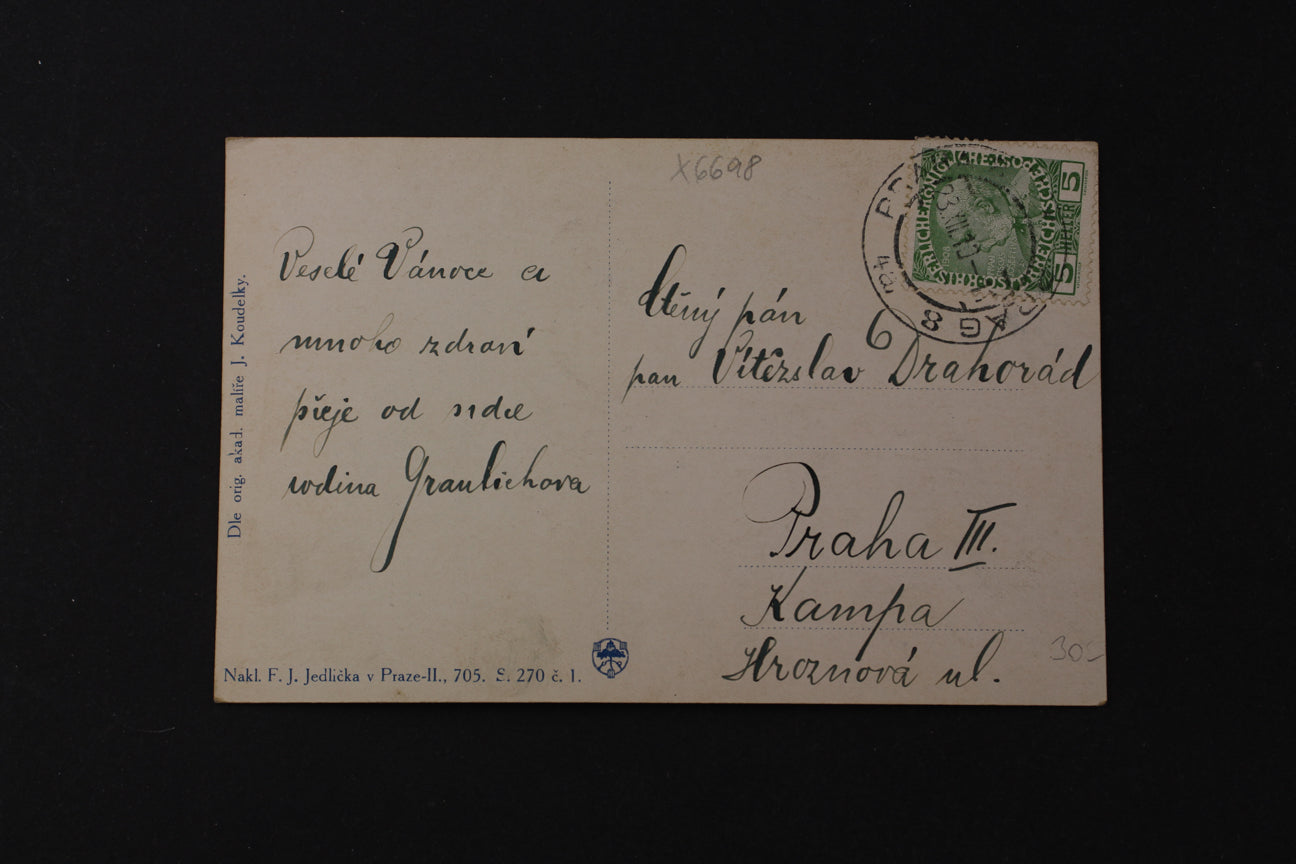 X6698
Veselé Vánoce a
mnoho zdraví
přeje od srdce
rodina Graulichova
Dle orig. akad. malíře J. Koudelky.
Nakl. F. J. Jedlička v Praze-II., 705. S. 270 č. 1.
Ctěný pán
6
pan Vítězslav Drahorád
Praha III.
Kampa
Hroznová ul.
30-
5 HELLER 5
8
4a